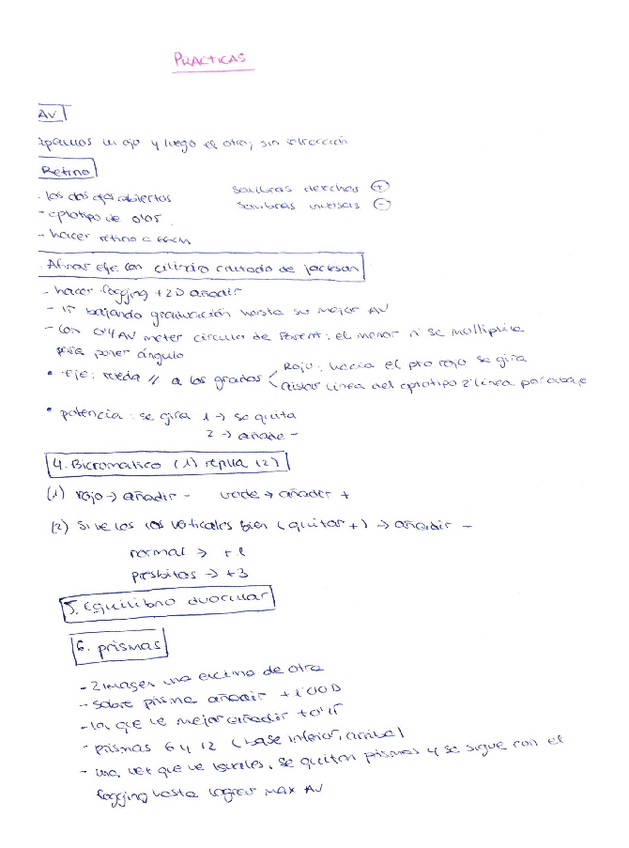 PRACTICAS
AV
Tapamos un ojo y luego el otro; sin refracción
Retino
- los dos ojos abiertos sombras derechas (+)
- optotipo de 0'05 sombras inversas (-)
- hacer retino a 66cm
Afinar eje con cilindro cruzado de jackson
- hacer fogging +2D añadir
- Ir bajando graduación hasta su mejor AV
- con 0'4 AV meter circulo de Parent: el menor nº se multiplica
para poner ángulo
• Eje: rueda // a los grados Rojo: hacia el pto rojo se gira
Aislar línea del optotipo 2 línea por abajo
• potencia: se gira 1 → se quita
2 → añade -
4. Bicromatico (1) rejilla (2)
(1) rojo → añadir - verde → añadir +
(2) Si ve los verticales bien (quitar +) → añadir -
normal → +1
presbitas → +3
5. Equilibrio
6. prismas
- 2 imagen una encima de otra
- sobre prisma añadir +1'00D
- la que ve mejor añadir +0'
- prismas 6 y 12 (base inferior, arriba)
- una vez que ve iguales, se quitan prismas y se sigue con el
fogging hasta lograr max AV